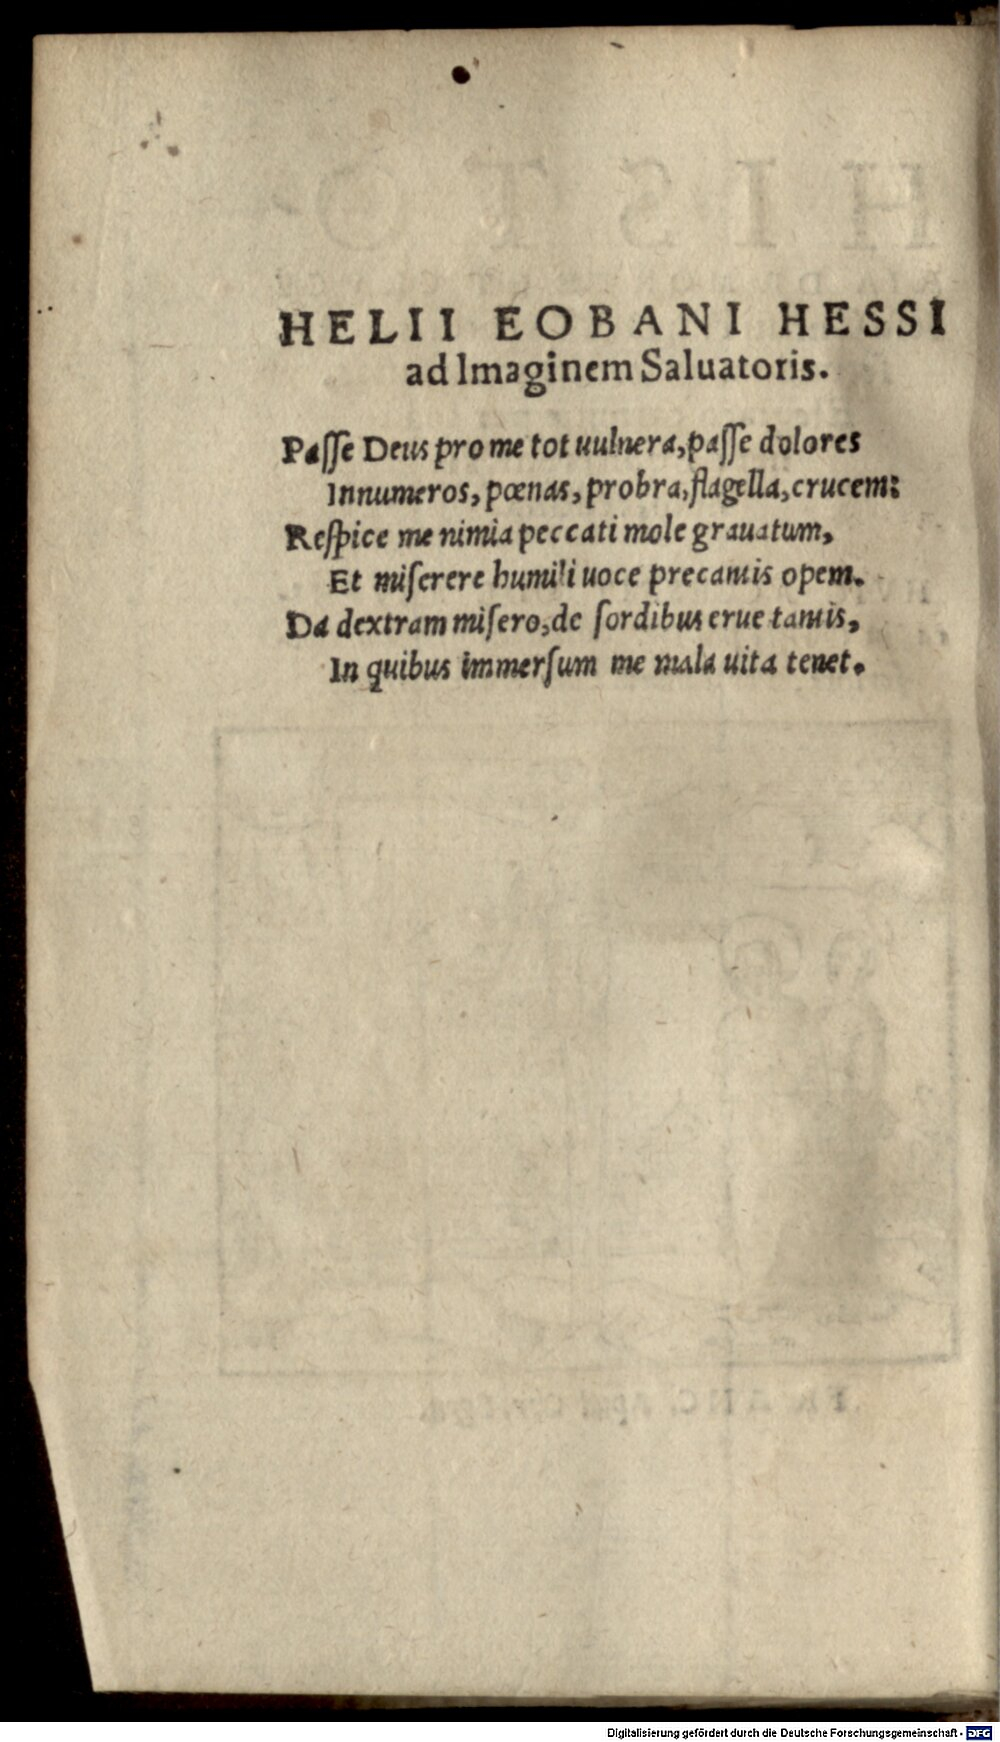 HELII EOBANI HESSI
ad Imaginem Saluatoris.
Passe Deus pro me tot uulnera, passe dolores
Innumeros, pœnas, probra, flagella, crucem:
Respice me nimia peccati mole grauatum,
Et miserere humili uoce precantis opem.
Da dextram misero, de sordibus erue tantis,
In quibus immersum me mala uita tenet.
Digitalisierung gefördert durch die Deutsche Forschungsgemeinschaft - DFG